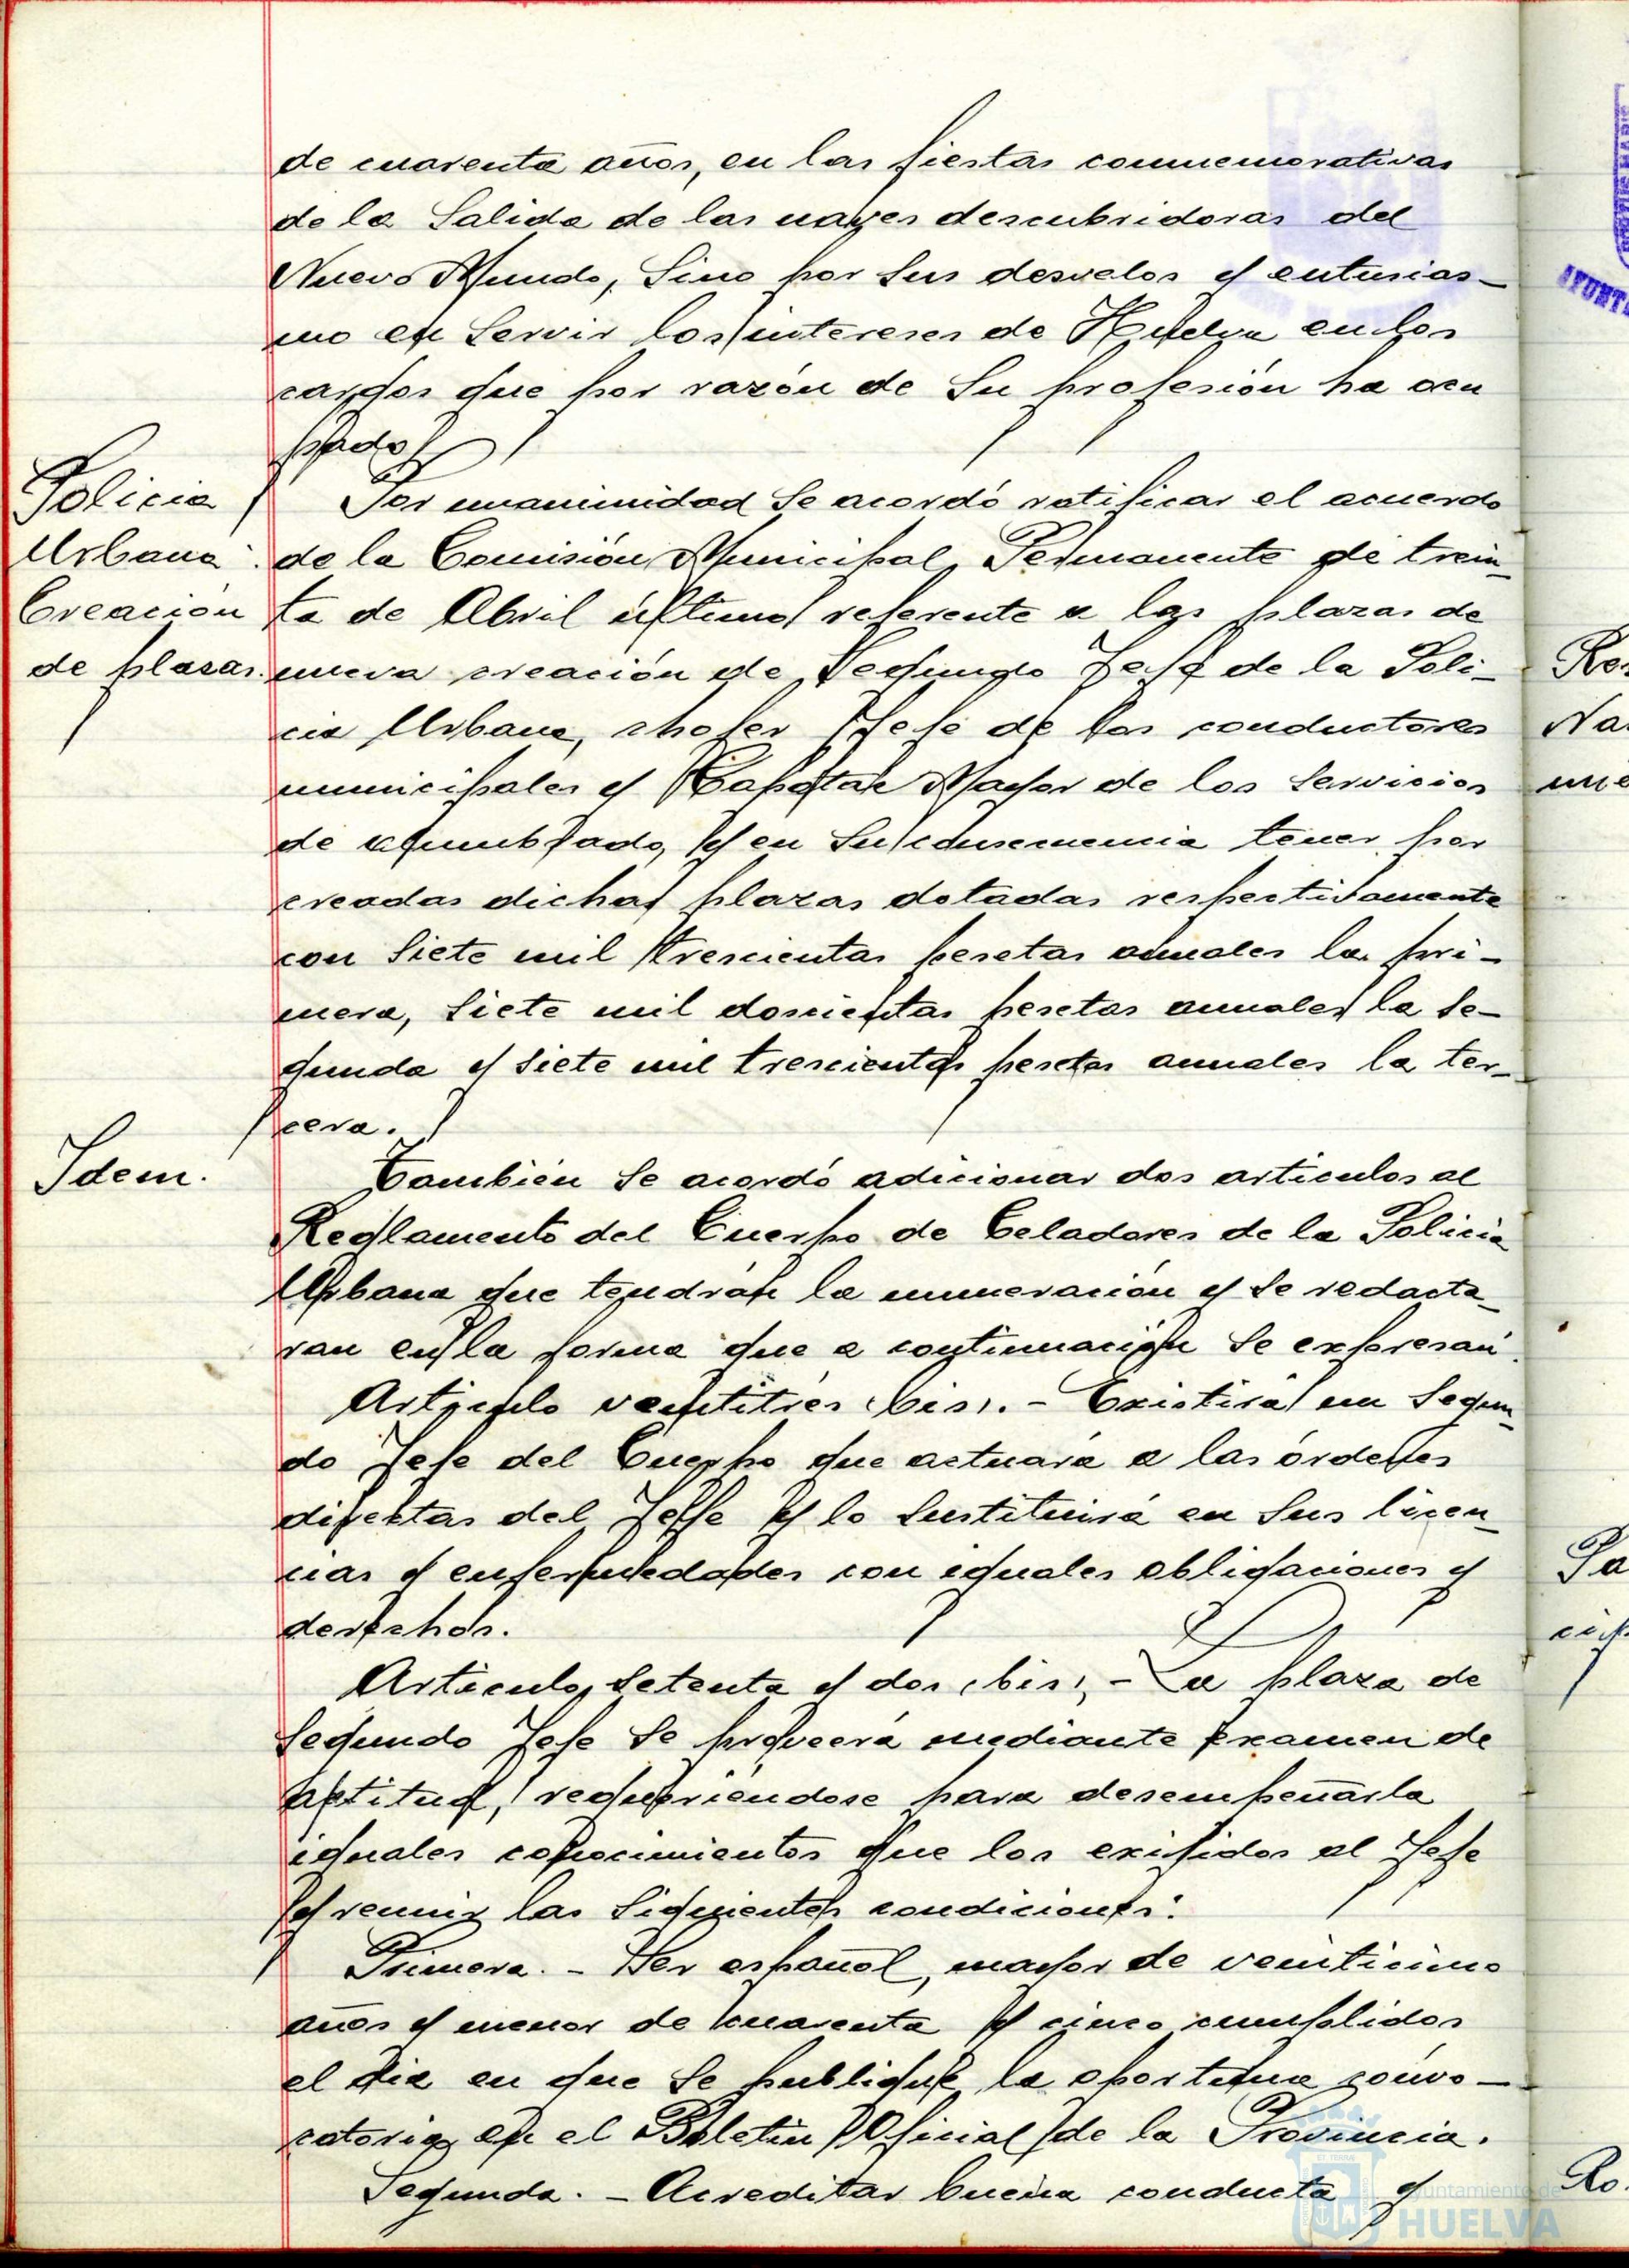 de cuarenta años, en las fiestas conmemorativas
de la Salida de las naves descubridoras del
Nuevo Mundo, Sino por Sus desvelos y entusias-
mo en Servir los intereses de Huelva en los
cargos que por razón de Su profesión ha ocu
pado.
Policia
Urbana
Creación
de plazas.
Por unanimidad Se acordó ratificar el acuerdo
de la Comisión Municipal Permanente de trein-
ta de Abril último referente a las plazas de
nueva creación de Segundo Jefe de la Poli-
cia Urbana, chofer Jefe de los conductores
municipales y Capataz Mayor de los Servicios
de alumbrado, y en Su consecuencia tener por
creadas dichas plazas dotadas respectivamente
con Siete mil trescientas pesetas anuales la pri-
mera, Siete mil doscientas pesetas anuales la Se-
gunda y siete mil trescientas pesetas anuales la ter-
cera.
Idem.
También Se acordó adicionar dos articulos al
Reglamento del Cuerpo de Celadores de la Policia
Urbana que tendrán la numeración y Se redacta-
ran en la forma que a continuación Se expresan.
Articulo veintitrés (bis). - Existirá un Segun-
do Jefe del Cuerpo que actuará a las órdenes
directas del Jefe y lo Sustituirá en Sus licen-
cias y enfermedades con iguales obligaciones y
derechos.
Articulo Setenta y dos (bis). - La plaza de
Segundo Jefe Se proveerá mediante examen de
aptitud, requeriéndose para desempeñarla
iguales conocimientos que los exigidos al Jefe
y reunir las Siguientes condiciones:
Primera. - Ser español, mayor de veinticinco
años y menor de cuarenta y cinco cumplidos
el dia en que Se publique la oportuna convo-
catoria en el Boletin Oficial de la Provincia.
Segunda. - Acreditar buena conducta y
Ayuntamiento de
HUELVA